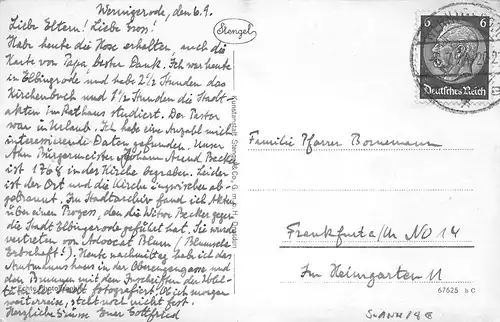 Wernigerode, den 6.9.
Liebe Eltern! Liebe Gross!
Habe heute die Hose erhalten, auch die
Karte von Papa, besten Dank. Ich war heute
in Elbingerode und habe 2 1/2 Stunden das
Kirchenbuch und 1 1/2 Stunden die Stadt-
akten im Rathaus studiert. Der Pastor
war in Urlaub. Ich habe eine Anzahl nicht
interessierende Daten gefunden. Unser
Ahn Bürgermeister Johann Arend Becker
ist 1768 in der Kirche begraben. Leider
ist der Ort und die Kirche inzwischen ab-
gebrannt. Im Stadtarchiv fand ich Akten
über einen Prozess, den die Witwe Becker gegen
die Stadt Elbingerode geführt hat. Sie wurde
vertreten von Advocat Blum (Blumsche
Erbschaft!). Heute nachmittag habe ich das
in der Oberengengasse und
den Brunnen mit den Inschriften der
fotografiert. Ob ich morgen
weiterreise, steht noch nicht fest.
Herzliche Grüsse Euer Gottfried
Stengel
Kunstanstalt Stengel & Co., G.m.b.H., Dresden
6 6
Deutsches Reich
Familie Pfarrer Bornemann
Frankfurt a/M NO 14
Im Heimgarten 11
67625 b C